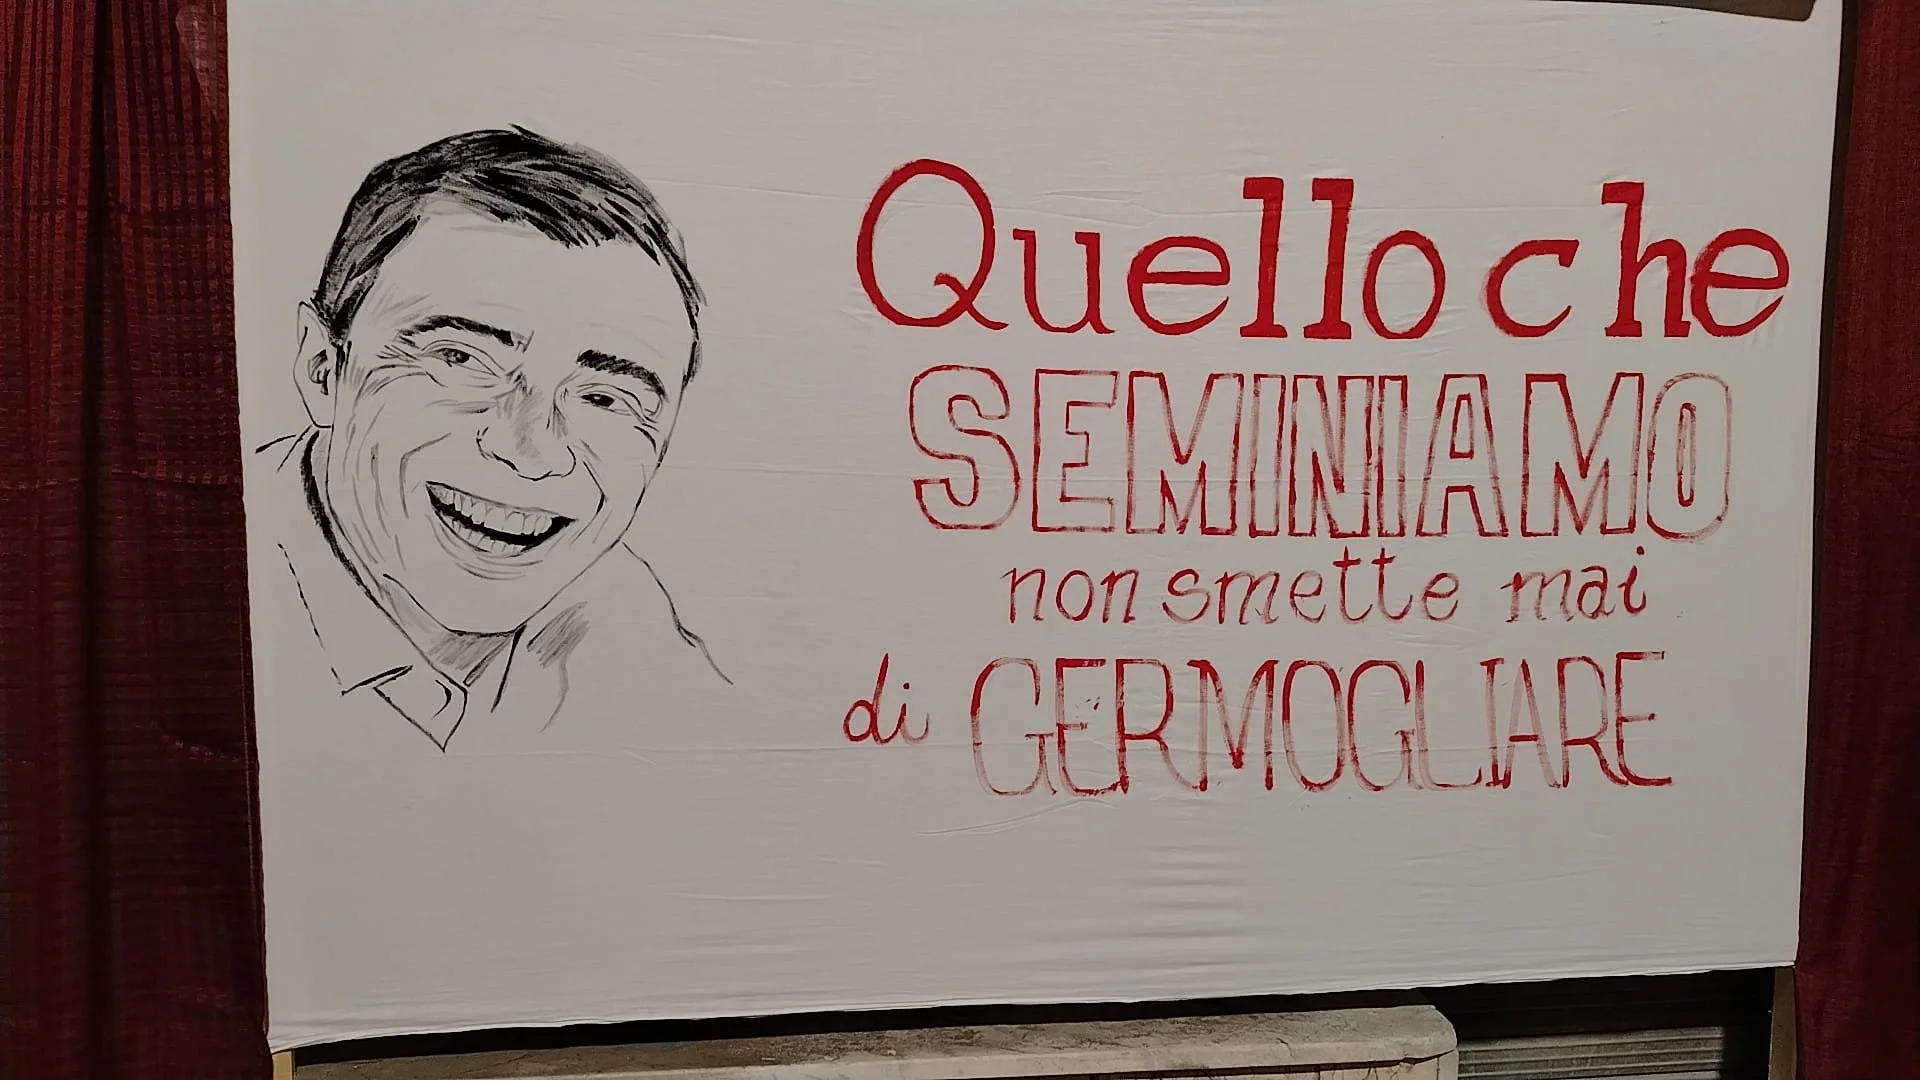 Quello che
SEMINIAMO
non smette mai
di GERMOGLIARE